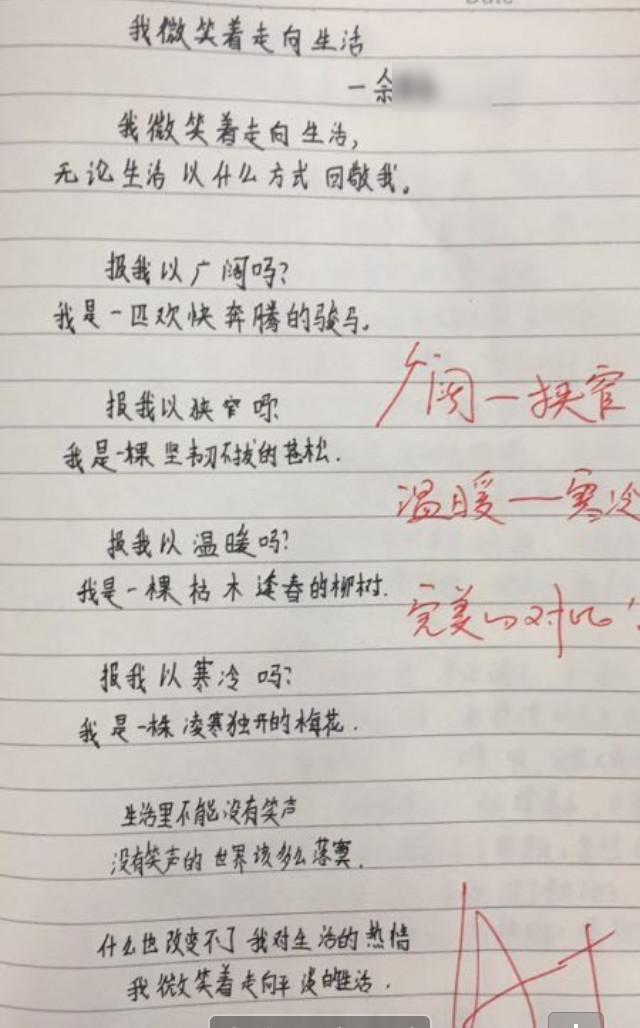 我微笑着走向生活
—余
我微笑着走向生活,
无论生活以什么方式回敬我。
报我以广阔吗?
我是一匹欢快奔腾的骏马。
报我以狭窄吗?
我是一棵坚韧不拔的苍松.
报我以温暖吗?
我是一棵枯木逢春的柳树.
报我以寒冷吗?
我是一株凌寒独开的梅花.
生活里不能没有笑声
没有笑声的世界该多么落寞.
什么也改变不了我对生活的热情
我微笑着走向平淡的生活.
广阔—狭窄
温暖—寒冷
完美的对比!
A+